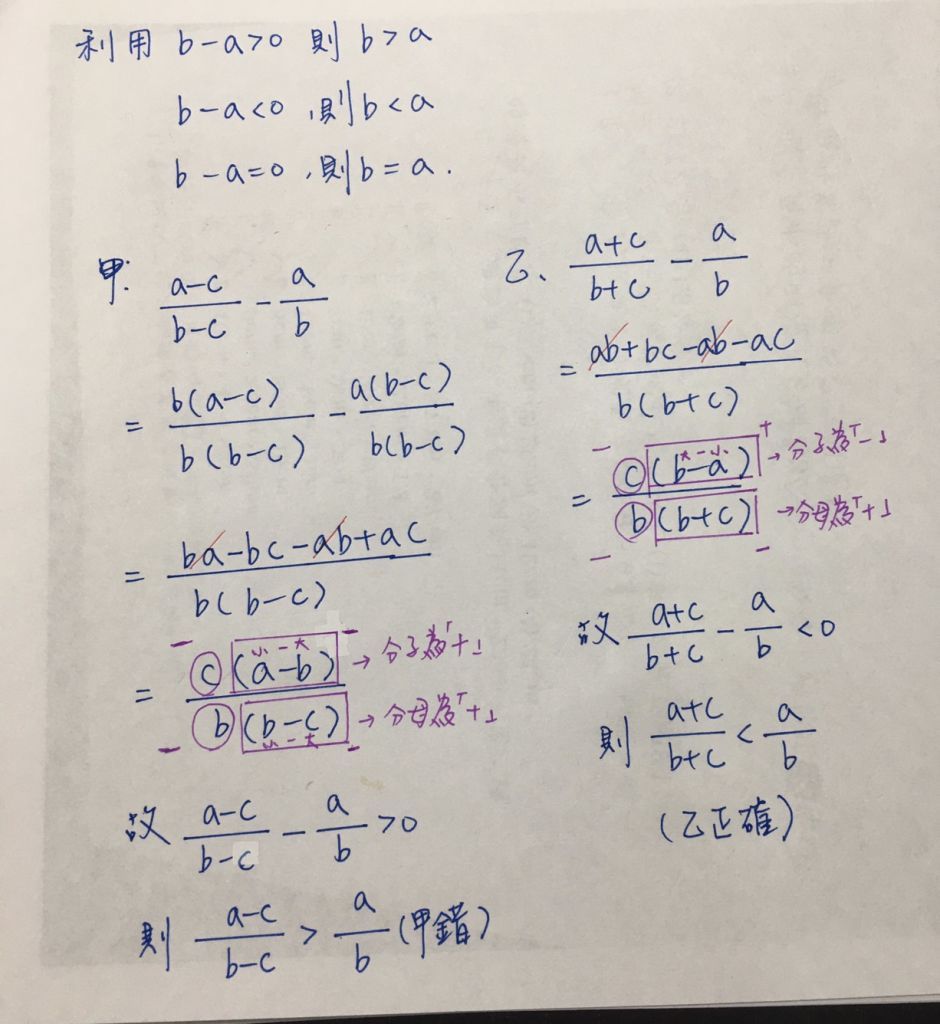 利用 b-a>0 則 b>a
b-a<0,則 b<a
b-a=0,則 b=a.
甲:
\frac{a-c}{b-c} - \frac{a}{b}
= \frac{b(a-c)}{b(b-c)} - \frac{a(b-c)}{b(b-c)}
= \frac{ba-bc-ab+ac}{b(b-c)}
- 小-大 -
= \frac{c(a-b)}{b(b-c)}
→分子為「+」
→分母為「+」
- 小-大 -
故 \frac{a-c}{b-c} - \frac{a}{b} >0
則 \frac{a-c}{b-c} > \frac{a}{b} (甲錯)
乙、\frac{a+c}{b+c} - \frac{a}{b}
= \frac{ab+bc-ab-ac}{b(b+c)}
- 大-小 +
= \frac{c(b-a)}{b(b+c)}
→分子為「-」
→分母為「+」
- -
故 \frac{a+c}{b+c} - \frac{a}{b} <0
則 \frac{a+c}{b+c} < \frac{a}{b}
(乙正確)